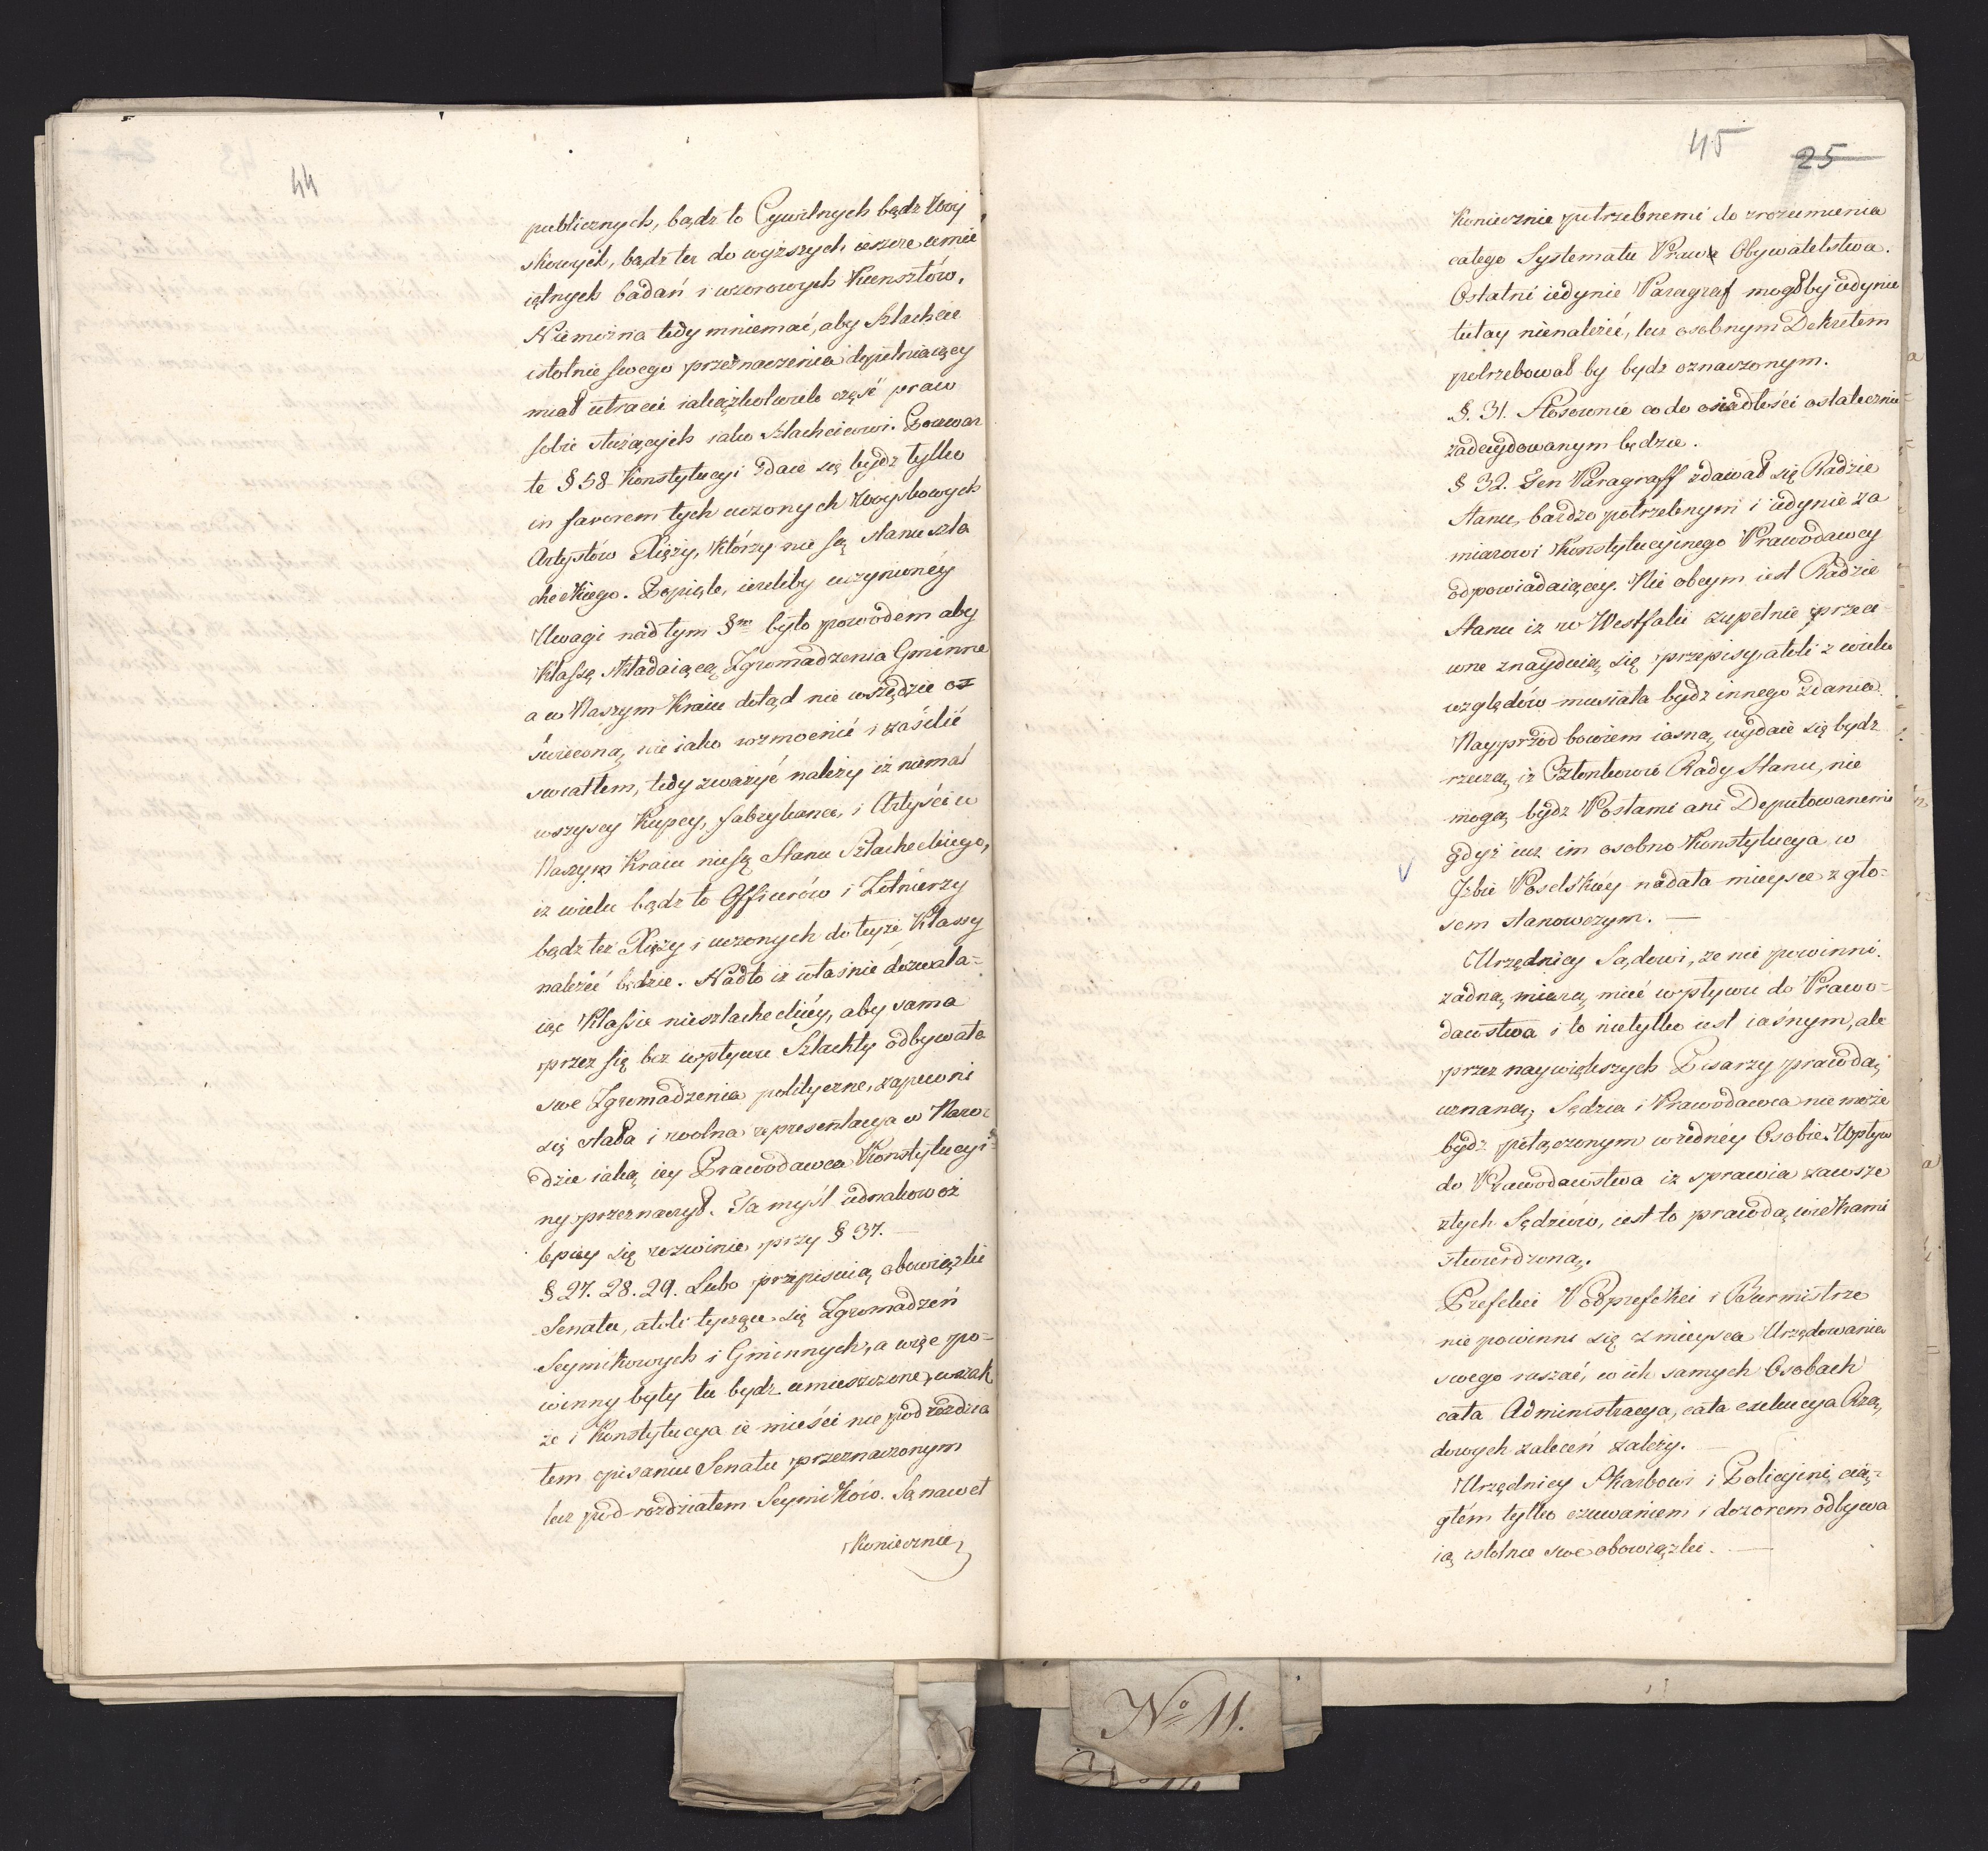 44
publicznych, bądz to Cywilnych bądz Woy
skowych, bądz tez do wyższych ieszcze umie
iętnych badań i wzorowych Kunsztów.
Niemożna tedy mniemać, aby Szlachcic
istotnie swego przeznaczenia dopełniaiący
miał utracić iakążkolwiek część praw
sobie służących iako szlachcicowi. Powaz
te § 58 Konstytucyi zdaie się bydz tylko
in favorem tych uczonych Woyskowych
Artystów Xięży, którzy nie są stanu szla
checkiego. Popiąte, ieżeliby uczynioney
Uwagi nad tym §m było powodem aby
Klassę składaiącą Zgromadzenia Gminne
a w Naszym Kraiu dotąd nie wszędzie oz
świeconą, nieiako wzmocnić i zasilić
swiatłem, tedy zważyć należy iż niemal
wszyscy Kupcy, fabrykanci, i Artyści w
Naszym Kraiu niesą Stanu Szlacheckiego,
iz wielu bądz to Officerów i Zołnierzy
bądz tez Xięży i uczonych do teyże Klassy
należeć będzie. Nadto iż własnie dozwala-
iąc Klassie nieszlacheckiéy, aby sama
przez się bez wpływu Szlachty odbywała
swe Zgromadzenia polityczne, zapewni
się stała i wolna reprezentacya w Naro-
dzie iaką iey Prawodawca Konstytucyi-
ny przeznaczył. Ta myśl iednakowoż
lepiey się rozwinie przy § 37.
§ 27. 28. 29. Lubo przepisuią obowiązki
Senatu, atoli tyczące się Zgromadzeń
Seymikowych i Gminnych, a więc po-
winny były tu bydz umieszczone, wszak
że i Konstytucya ie mieści nie pod rozdzia
łem opisaniu Senatu przeznaczonym
lecz pod rozdziałem Seymików. Są nawet
Koniecznie
45
25
Koniecznie potrzebnemi do zrozumienia
całego Systematu Prawa Obywatelstwa.
Ostatni iedynie Paragraf mogłby iedynie
tutay nienależeć, lecz osobnym Dekretem
potrzebował by bydz oznaczonym.
§. 31. Stosownie co do osiadłości ostatecznie
zadecydowanym będzie.
§ 32. Ten Paragraff zdawał się Radzie
Stanu, bardzo potrzebnym i iedynie za
miarowi Konstytucyinego Prawodawcy
odpowiadaiącey. Nie obcym iest Radzie
Stanu iz w Westfalii zupełnie przeci
wne znayduią się przepisy, atoli z wielu
względów musiała bydz innego zdania
Nayprzód bowiem iasną wydaie się bydz
rzeczą, iż Członkowie Rady Stanu, nie
mogą bydz Posłami ani Deputowanemi
gdyż iuz im osobno Konstytucya w
Izbie Poselskiéy nadała mieysce z gło-
sem stanowczym. —
Urzędnicy Sądowi, że nie powinni
zadną miarą mieć wpływu do Prawo-
dawstwa i to nietylko iest iaśnym, ale
przez naywiększych Pisarzy prawdą
uznaną; Sędzia i Prawodawca nie może
bydz połączonym w iednéy Osobie. Wpływ
do Prawodawstwa iz sprawia zawsze
złych Sędziów, iest to prawdą wiekami
stwierdzoną.
Prefekci Podprefekci i Burmistrze
nie powinni się z mieysca Urzędowania
swego ruszać, w ich samych Osobach
cała Administracya, cała exekucya Rzą
dowych zaleceń zależy.
Urzędnicy Skarbowi i Policyini, cią-
głem tylko czuwaniem i dozorem odbywa
ią istotnie swe obowiązki. —
No 11.